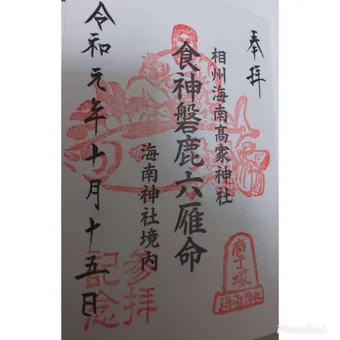 奉拝
相州海南高家神社
食神磐鹿六雁命
海南神社境内
令和元年十月十五日
参拝
記念
庖丁塚